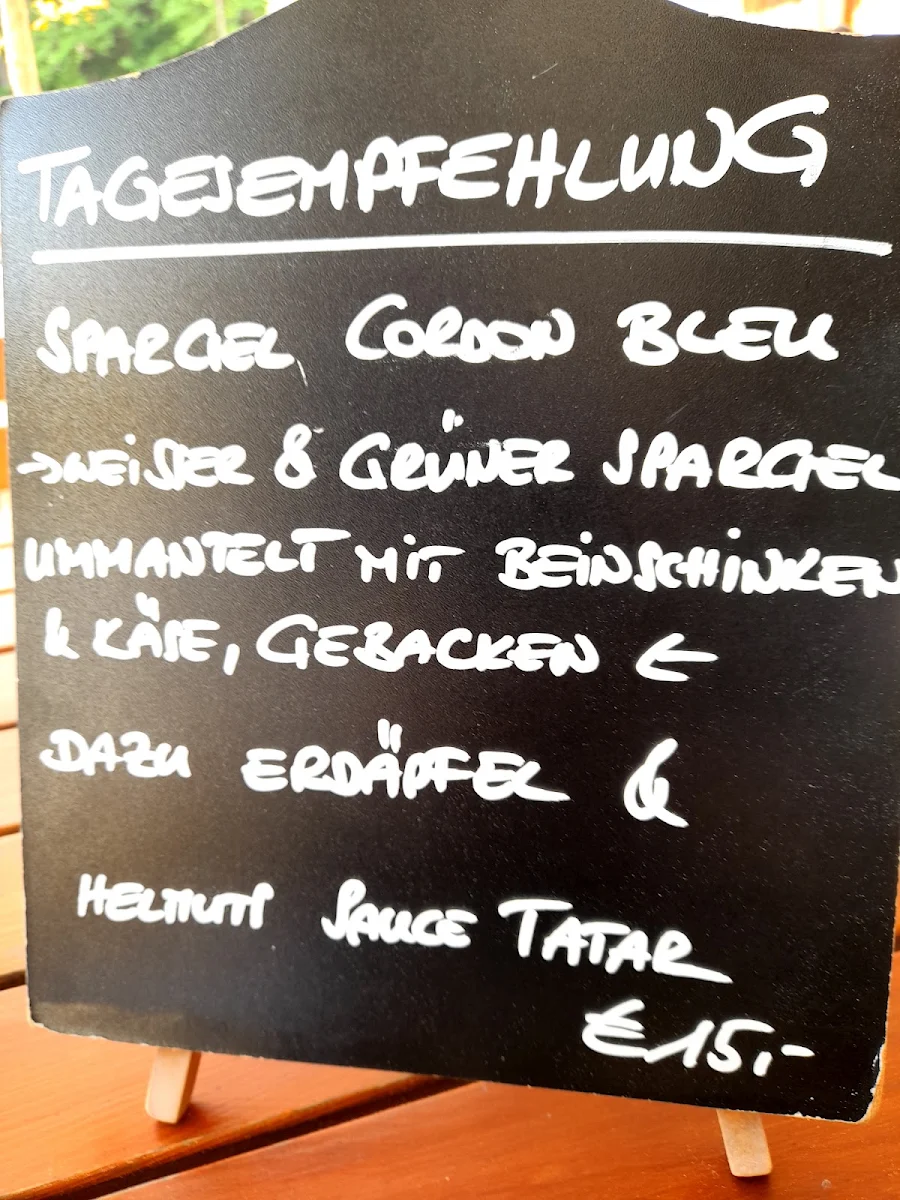 TAGESEMPFEHLUNG
SPARGEL CORDON BLEU
→WEISSER & GRÜNER SPARGEL
UMMANTELT MIT BEINSCHINKEN
& KÄSE, GEBACKEN ←
DAZU ERDÄPFEL &
HELMUTS SAUCE TATAR
€ 15,-